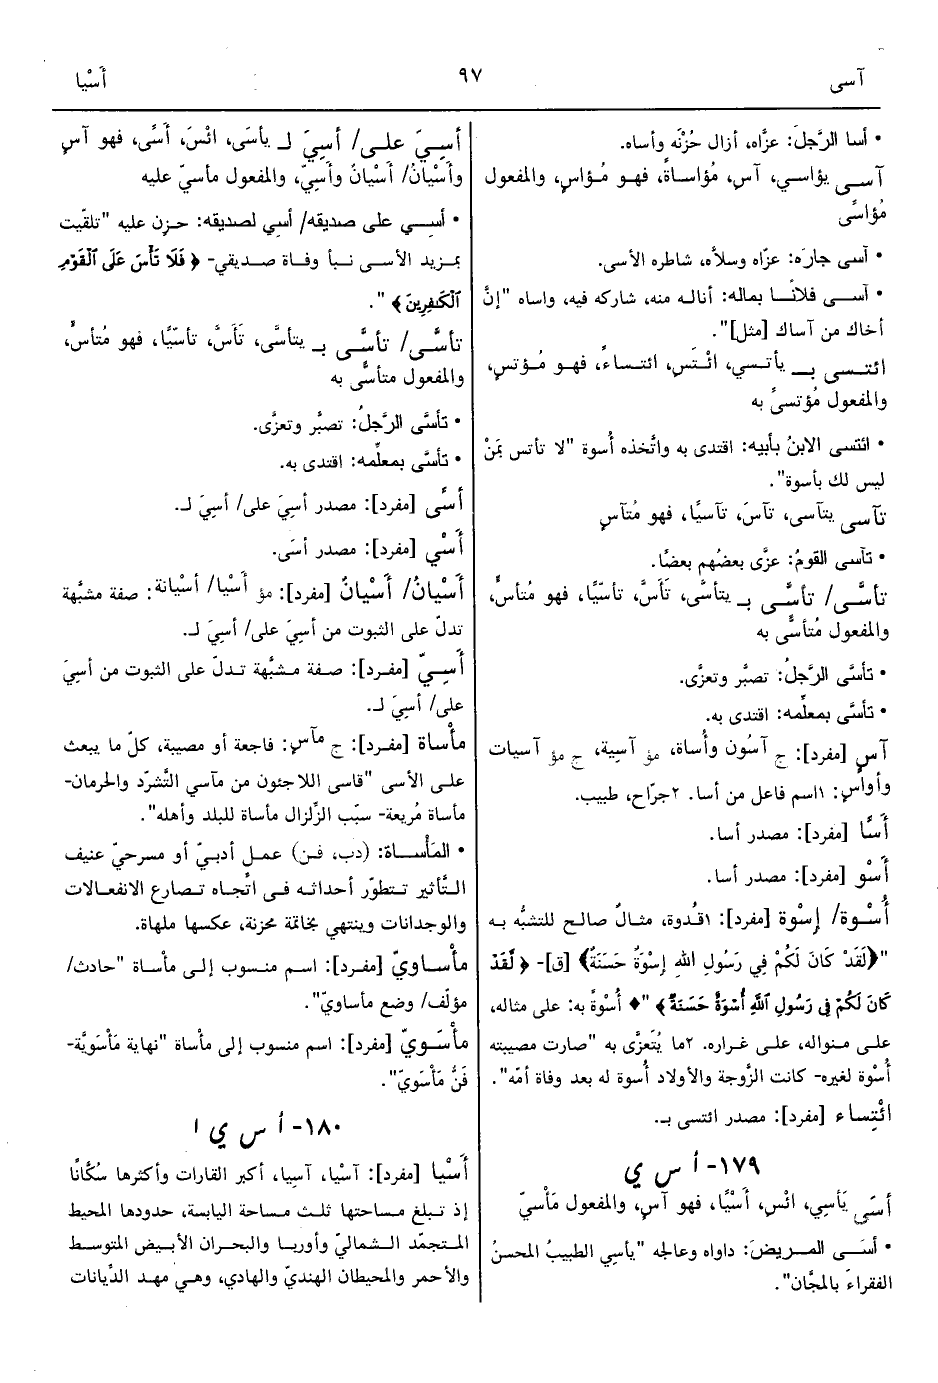 آسى
٩٧
أسْيا
• أسا الرَّجلَ: عزَّاه، أزال حُزْنَه وأساه.
آسى يؤاسي، آسِ، مُؤاساةً، فهو مُؤاسٍ، والمفعول
مُؤاسًى
• آسى جارَه: عزّاه وسلاَّه، شاطره الأسى.
• آسى فلانًا بماله: أناله منه، شاركه فيه، واساه "إنَّ
أخاك من آساك [مثل]".
ائتسى بـ يأتسي، ائْتَسِ، ائتساءً، فهو مُؤتسٍ،
والمفعول مُؤتسىً به
• ائتسى الابنُ بأبيه: اقتدى به واتَّخذه أُسوة "لا تأتس بمَنْ
ليس لك بأسوة".
تآسى يتآسى، تآسَ، تآسيًا، فهو مُتآسٍ
• تآسى القومُ: عزَّى بعضُهم بعضًا.
تأسَّى/ تأسَّى بـ يتأسَّى، تَأَسَّ، تأسّيًا، فهو مُتأسٍّ،
والمفعول مُتأسًّى به
• تأسَّى الرَّجلُ: تصبَّر وتعزَّى.
• تأسَّى بمعلِّمه: اقتدى به.
آسٍ [مفرد]: ج آسُون وأُساة، مؤ آسِية، ج مؤ آسيات
وأواسٍ: ١اسم فاعل من أسا. ٢جرّاح، طبيب.
أَسًا [مفرد]: مصدر أسا.
أَسْو [مفرد]: مصدر أسا.
أُسْوة/ إسْوة [مفرد]: ١قُدوة، مثالٌ صالح للتشبُّه به
"﴿لَقَدْ كَانَ لَكُمْ فِي رَسُولِ اللهِ إِسْوَةٌ حَسَنَةٌ﴾ [ق]- ﴿ لَقَدْ
كَانَ لَكُمْ فِي رَسُولِ ٱللَّهِ أُسْوَةٌ حَسَنَةٌ ﴾ "♦ أُسْوةً به: على مثاله،
على منواله، على غراره. ٢ما يُتَعزَّى به "صارت مصيبته
أُسْوة لغيره- كانت الزَّوجة والأولاد أُسوة له بعد وفاة أمّه".
ائْتِساء [مفرد]: مصدر ائتسى بـ.
١٧٩- أ س ي
أسَى يَأسِي، ائْسِ، أَسْيًا، فهو آسٍ، والمفعول مَأسيّ
• أسَى المريضَ: داواه وعالجه "يأسِي الطبيبُ المحسنُ
الفقراءَ بالمجَّان".
أسِيَ على/ أسِيَ لـ يأسَى، ائْسَ، أَسًى، فهو آسٍ
وأَسْيانُ/ أسْيانٌ وأَسِيّ، والمفعول مأسيّ عليه
• أسي على صديقه/ أسي لصديقه: حزن عليه "تلقّيت
بمزيد الأسى نبأ وفاة صديقي- ﴿ فَلَا تَأْسَ عَلَى ٱلْقَوْمِ
ٱلْكَٰفِرِينَ ﴾ ".
تأسَّى/ تأسَّى بـ يتأسَّى، تَأَسَّ، تأسّيًا، فهو مُتأسٍّ،
والمفعول متأسًّى به
• تأسَّى الرَّجلُ: تصبَّر وتعزَّى.
• تأسَّى بمعلِّمه: اقتدى به.
أسًى [مفرد]: مصدر أسيَ على/ أسيَ لـ.
أَسْي [مفرد]: مصدر أسَى.
أَسْيانُ/ أَسْيانٌ [مفرد]: مؤ أَسْيا/ أسْيانة: صفة مشبَّهة
تدلّ على الثبوت من أسِيَ على/ أسِيَ لـ.
أَسِيّ [مفرد]: صفة مشبَّهة تدلّ على الثبوت من أسِيَ
على/ أسِيَ لـ.
مأساة [مفرد]: ج مآسٍ: فاجعة أو مصيبة، كلّ ما يبعث
على الأسى "قاسى اللاجئون من مآسي التَّشرّد والحرمان-
مأساة مُريعة- سبّب الزِّلزال مأساة للبلد وأهله".
• المَأْساة: (دب، فن) عمل أدبيّ أو مسرحيّ عنيف
التَّأثير تتطوّر أحداثه فى اتّجاه تصارع الانفعالات
والوجدانات وينتهي بخاتمة محزنة، عكسها ملهاة.
مأساويّ [مفرد]: اسم منسوب إلى مأساة "حادث/
مؤلّف/ وضع مأساويّ".
مأسَويّ [مفرد]: اسم منسوب إلى مأساة "نهاية مَأْسَويَّة-
فَنٌّ مَأْسَويّ".
١٨٠- أ س ي ا
أَسْيا [مفرد]: آسْيا، آسِيا، أكبر القارات وأكثرها سُكَّانًا
إذ تبلغ مساحتها ثلث مساحة اليابسة، حدودها المحيط
المتجمّد الشماليّ وأوربا والبحران الأبيض المتوسط
والأحمر والمحيطان الهنديّ والهادي، وهي مهد الدِّيانات